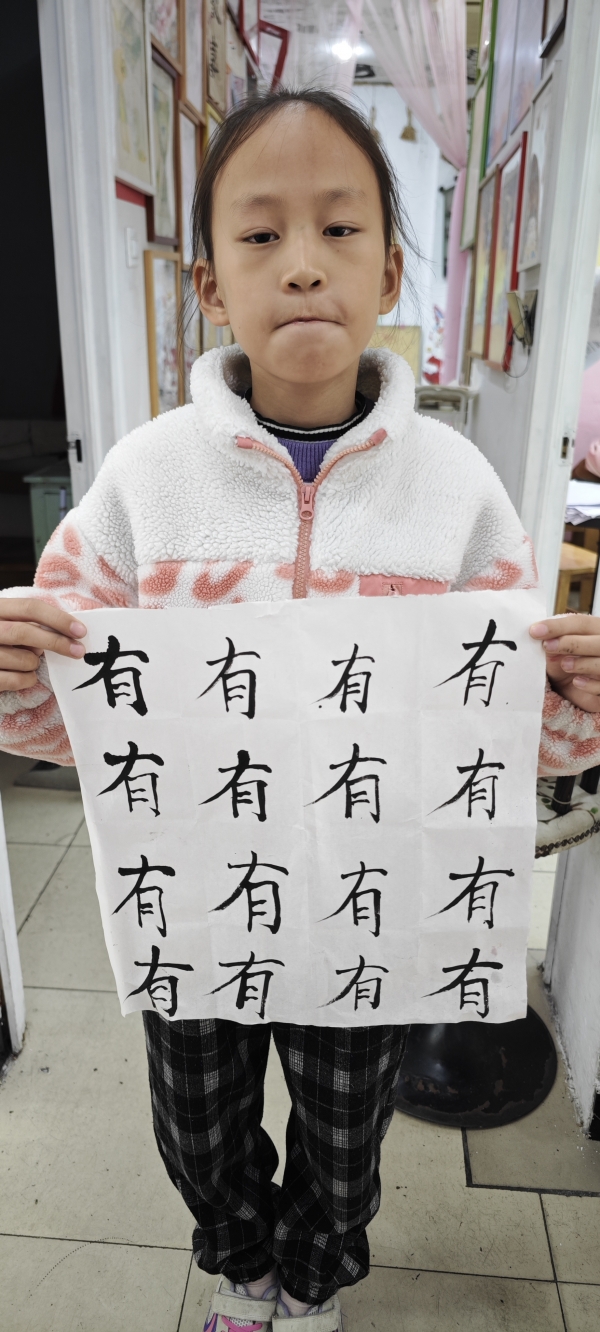 有 有 有 有
有 有 有 有
有 有 有 有
有 有 有 有